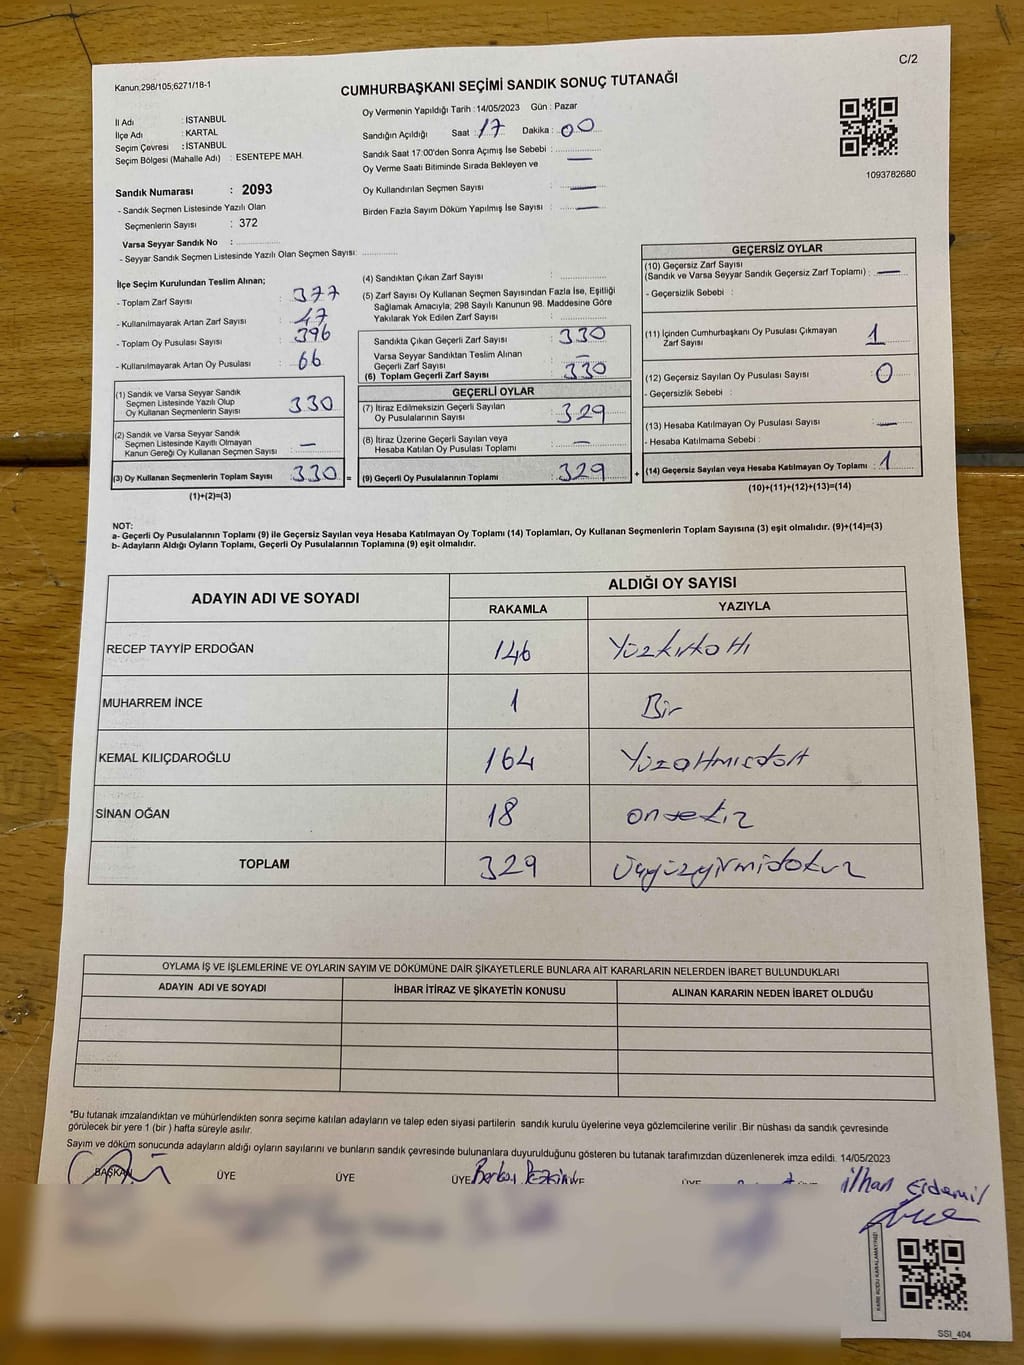 Kanun;298/105;6271/18-1
C/2
CUMHURBAŞKANI SEÇİMİ SANDIK SONUÇ TUTANAĞI
İl Adı : İSTANBUL
İlçe Adı : KARTAL
Seçim Çevresi : İSTANBUL
Seçim Bölgesi (Mahalle Adı) : ESENTEPE MAH.
Sandık Numarası : 2093
- Sandık Seçmen Listesinde Yazılı Olan
Seçmenlerin Sayısı : 372
Varsa Seyyar Sandık No :
- Seyyar Sandık Seçmen Listesinde Yazılı Olan Seçmen Sayısı:
Oy Vermenin Yapıldığı Tarih : 14/05/2023 Gün : Pazar
Sandığın Açıldığı Saat : 17 Dakika : 00
Sandık Saat 17:00'den Sonra Açımış İse Sebebi :
Oy Verme Saati Bitiminde Sırada Bekleyen ve —
Oy Kullandırılan Seçmen Sayısı : —
Birden Fazla Sayım Döküm Yapılmış İse Sayısı : —
1093782680
İlçe Seçim Kurulundan Teslim Alınan;
- Toplam Zarf Sayısı : 377
- Kullanılmayarak Artan Zarf Sayısı : 47
- Toplam Oy Pusulası Sayısı : 396
- Kullanılmayarak Artan Oy Pusulası : 66
(1) Sandık ve Varsa Seyyar Sandık
Seçmen Listesinde Yazılı Olup
Oy Kullanan Seçmenlerin Sayısı 330
(2) Sandık ve Varsa Seyyar Sandık
Seçmen Listesinde Kayıtlı Olmayan
Kanun Gereği Oy Kullanan Seçmen Sayısı —
(3) Oy Kullanan Seçmenlerin Toplam Sayısı 330 =
(1)+(2)=(3)
(4) Sandıktan Çıkan Zarf Sayısı :
(5) Zarf Sayısı Oy Kullanan Seçmen Sayısından Fazla İse, Eşitliği
Sağlamak Amacıyla; 298 Sayılı Kanunun 98. Maddesine Göre
Yakılarak Yok Edilen Zarf Sayısı :
Sandıkta Çıkan Geçerli Zarf Sayısı : 330
Varsa Seyyar Sandıktan Teslim Alınan
Geçerli Zarf Sayısı : —
(6) Toplam Geçerli Zarf Sayısı : 330
GEÇERLİ OYLAR
(7) İtiraz Edilmeksizin Geçerli Sayılan
Oy Pusulalarının Sayısı : 329
(8) İtiraz Üzerine Geçerli Sayılan veya
Hesaba Katılan Oy Pusulası Toplamı : —
(9) Geçerli Oy Pusulalarının Toplamı : 329 +
GEÇERSİZ OYLAR
(10) Geçersiz Zarf Sayısı
(Sandık ve Varsa Seyyar Sandık Geçersiz Zarf Toplamı) : —
- Geçersizlik Sebebi :
(11) İçinden Cumhurbaşkanı Oy Pusulası Çıkmayan
Zarf Sayısı : 1
(12) Geçersiz Sayılan Oy Pusulası Sayısı : 0
- Geçersizlik Sebebi :
(13) Hesaba Katılmayan Oy Pusulası Sayısı : —
- Hesaba Katılmama Sebebi :
(14) Geçersiz Sayılan veya Hesaba Katılmayan Oy Toplamı : 1
(10)+(11)+(12)+(13)=(14)
NOT:
a- Geçerli Oy Pusulalarının Toplamı (9) ile Geçersiz Sayılan veya Hesaba Katılmayan Oy Toplamı (14) Toplamları, Oy Kullanan Seçmenlerin Toplam Sayısına (3) eşit olmalıdır. (9)+(14)=(3)
b- Adayların Aldığı Oyların Toplamı, Geçerli Oy Pusulalarının Toplamına (9) eşit olmalıdır.
ADAYIN ADI VE SOYADI ALDIĞI OY SAYISI
RAKAMLA YAZIYLA
RECEP TAYYİP ERDOĞAN 146 Yüzkırkaltı
MUHARREM İNCE 1 Bir
KEMAL KILIÇDAROĞLU 164 Yüzaltmışdört
SİNAN OĞAN 18 onsekiz
TOPLAM 329 Üçyüzyirmidokuz
OYLAMA İŞ VE İŞLEMLERİNE VE OYLARIN SAYIM VE DÖKÜMÜNE DAİR ŞİKAYETLERLE BUNLARA AİT KARARLARIN NELERDEN İBARET BULUNDUKLARI
ADAYIN ADI VE SOYADI İHBAR İTİRAZ VE ŞİKAYETİN KONUSU ALINAN KARARIN NEDEN İBARET OLDUĞU
*Bu tutanak imzalandıktan ve mühürlendikten sonra seçime katılan adayların ve talep eden siyasi partilerin sandık kurulu üyelerine veya gözlemcilerine verilir .Bir nüshası da sandık çevresinde
görülecek bir yere 1 (bir ) hafta süreyle asılır.
Sayım ve döküm sonucunda adayların aldığı oyların sayılarını ve bunların sandık çevresinde bulunanlara duyurulduğunu gösteren bu tutanak tarafımızdan düzenlenerek imza edildi. 14/05/2023
BAŞKAN ÜYE ÜYE ÜYE
İlhan Erdemil
KARE KODU KARALAMAYINIZ!
SSI_404